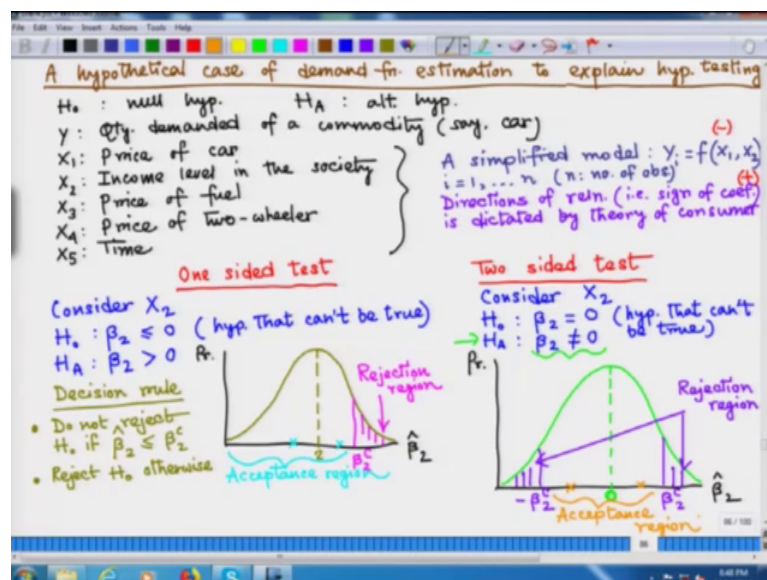 File Edit View Insert Actions Tools Help
A hypothetical case of demand fn. estimation to explain hyp. testing
H₀ : null hyp. H_A : alt. hyp.
Y : Qty. demanded of a commodity (say. car)
X₁ : Price of car
X₂ : Income level in the society
X₃ : Price of fuel
X₄ : Price of two-wheeler
X₅ : Time
(-)
A simplified model : Yᵢ = f(X₁, X₂)
i = 1, .... n (n: no. of obs) (+)
Directions of reln. (i.e. sign of coef.)
is dictated by theory of consumer
One sided test
Consider X₂
H₀ : β₂ ≤ 0 (hyp. that can't be true)
H_A : β₂ > 0
Decision rule
• Do not reject
H₀ if β̂₂ ≤ β₂ᶜ
• Reject H₀ otherwise
Pr.
Rejection
region
2
β₂ᶜ
β̂₂
Acceptance region
Two sided test
Consider X₂
H₀ : β₂ = 0 (hyp. that can't
be true)
→ H_A : β₂ ≠ 0
Pr.
Rejection
region
-β₂ᶜ
0
β₂ᶜ
β̂₂
Acceptance
region
86 / 100
86
5:48 PM